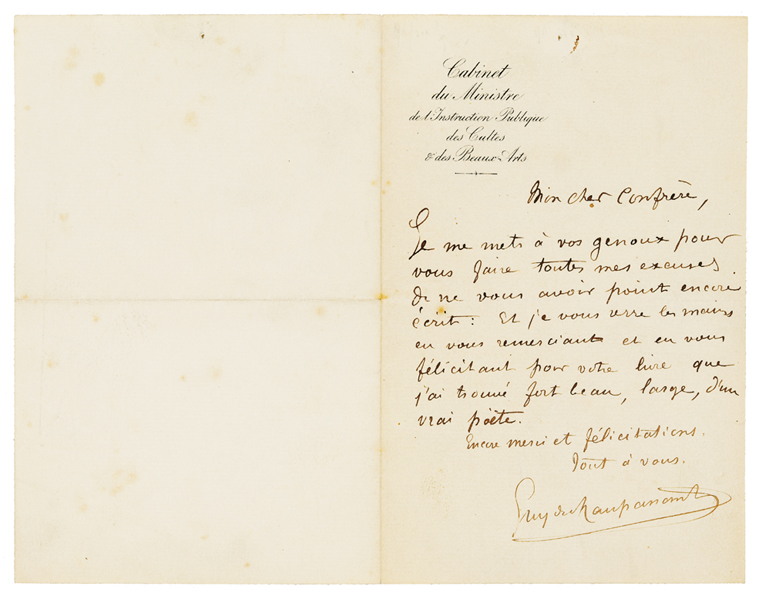 Cabinet
du Ministre
de l'Instruction Publique
des Cultes
& des Beaux-Arts
Mon cher Confrère,
Je me mets à vos genoux pour
vous faire toutes mes excuses
de ne vous avoir point encore
écrit: Et je vous serre les mains
en vous remerciant et en vous
félicitant pour votre livre que
j'ai trouvé fort beau, large, d'un
vrai poète.
Encore merci et félicitations.
Tout à vous.
Guy de Maupassant